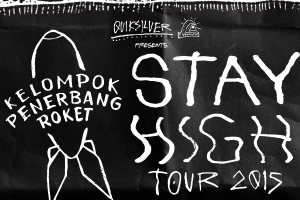 QUIKSILVER
PRESENTS
KELOMPOK
PENERBANG
ROKET
STAY
HIGH
TOUR 2015